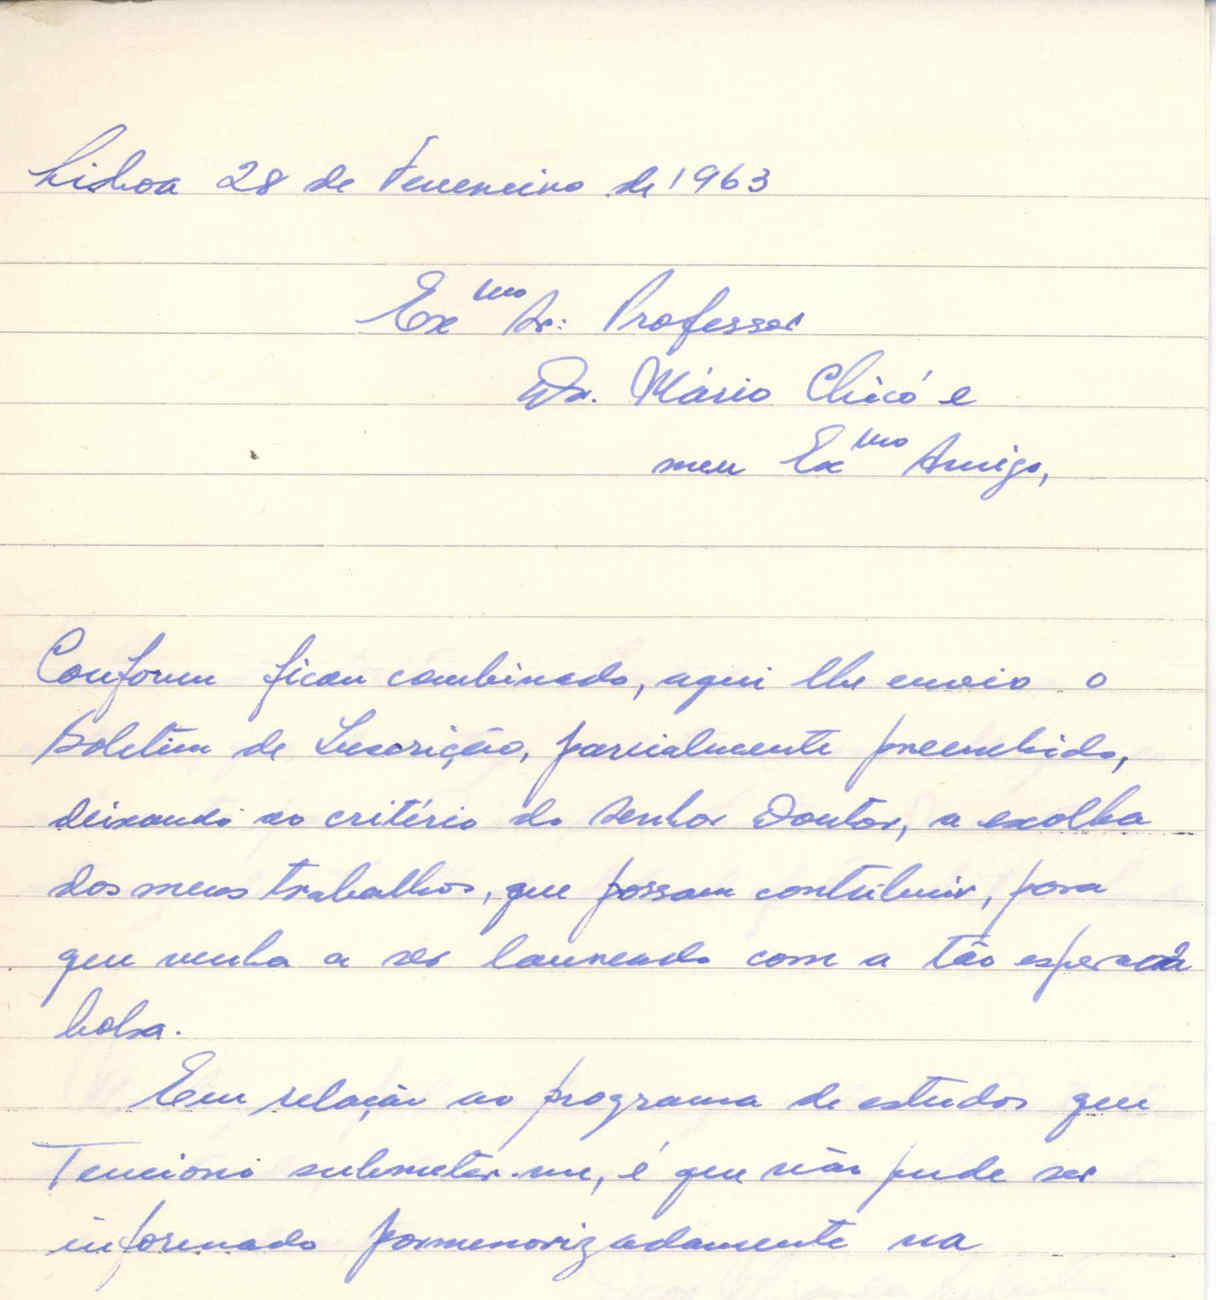 Lisboa 28 de Fevereiro de 1963
Exmo Sr. Professor
Dr. Mário Chicó e
meu Exmo Amigo,
Conforme ficou combinado, aqui lhe envio o
Boletim de Inscrição, parcialmente preenchido,
deixando ao critério do Senhor Doutor, a escolha
dos meus trabalhos, que possam contribuir, para
que venha a ser laureado com a tão esperada
bolsa.
Em relação ao programa de estudos que
Tenciono submeter-me, é que não pude ser
informado pormenorizadamente na